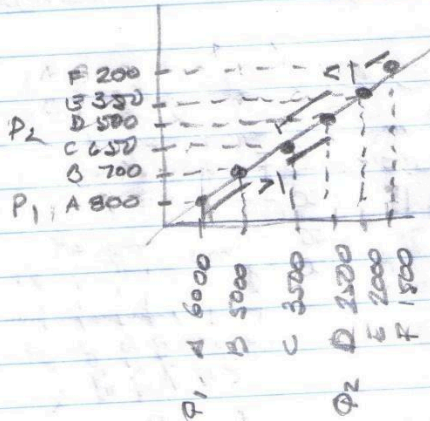 F 200
E 350
P2 D 500
C 650
B 700
P1 A 800
<1
>1
A 6000
B 5000
C 3500
D 2500
E 2000
F 1500
Q1
Q2